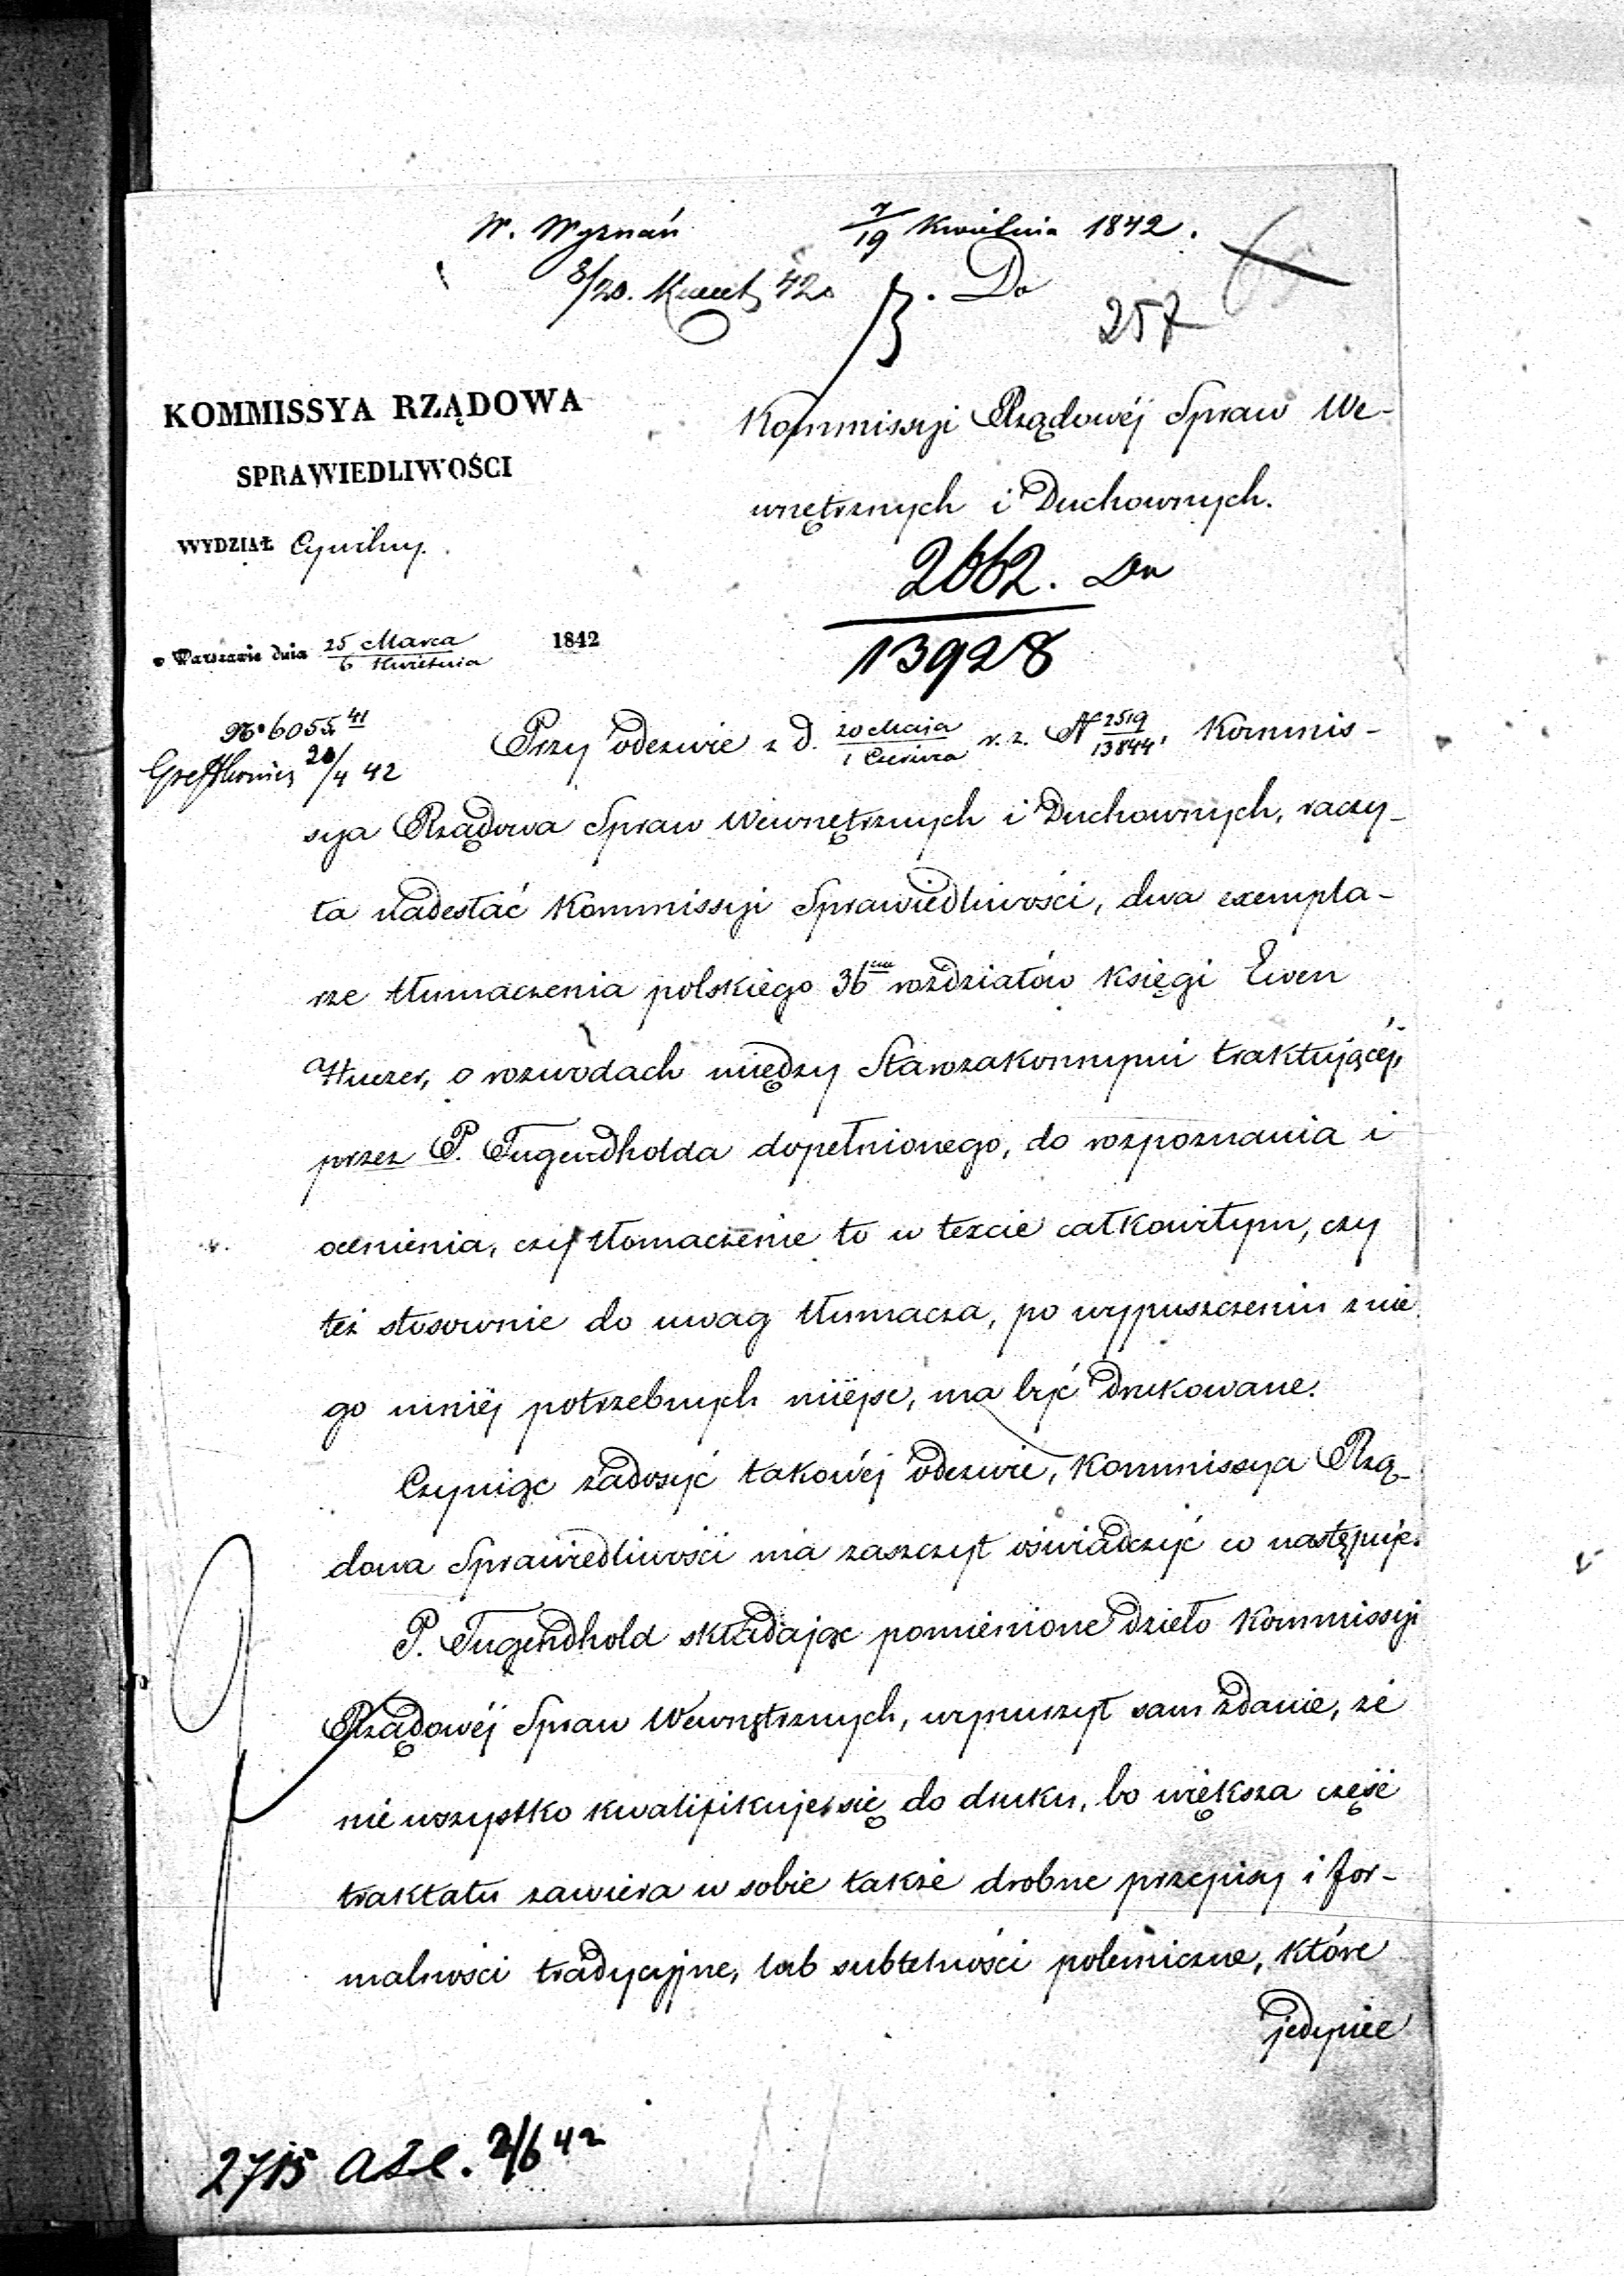 W. Wyznań 7/19 Kwietnia 1842.
8/20. Kwiet 42. Do
257
KOMMISSYA RZĄDOWA
SPRAWIEDLIWOŚCI
WYDZIAŁ Cywilny.
Kommissyi Rządowéj Spraw We-
wnętrznych i Duchownych.
2662.
13928
w Warszawie dnia 25 Marca / 6 Kwietnia 1842
No 6055 41
20/4 42
Przy odezwie z d. 20 Maja / 1 Czerwca r. z. N 2519/13844, Kommis-
sya Rządowa Spraw Wewnętrznych i Duchownych, raczy-
ła nadesłać Kommissyi Sprawiedliwości, dwa exempla-
rze tłumaczenia polskiego 36ciu rozdziałów księgi Ewen
Huezer, o rozwodach między Starozakonnymi traktującéj,
przez P. Tugendholda dopełnionego, do rozpoznania i
ocenienia, czy tłomaczenie to w texcie całkowitym, czy
też stosownie do uwag tłumacza, po wypuszczeniu z nie
go mniéj potrzebnych miéjsc, ma być drukowane.
Czyniąc zadosyć takowéj odezwie, Kommissya Rzą-
dowa Sprawiedliwości ma zaszczyt oświadczyć co następuje.
P. Tugendhold składając pomienione dzieło Kommissyi
Rządowéj Spraw Wewnętrznych, wynurzył sam zdanie, że
nie wszystko kwalifikuje się do druku, bo większa część
traktatu zawiera w sobie także drobne przepisy i for-
malności tradycyjne, lub subtelności polemiczne, które
jedynie
2715 2/6 42